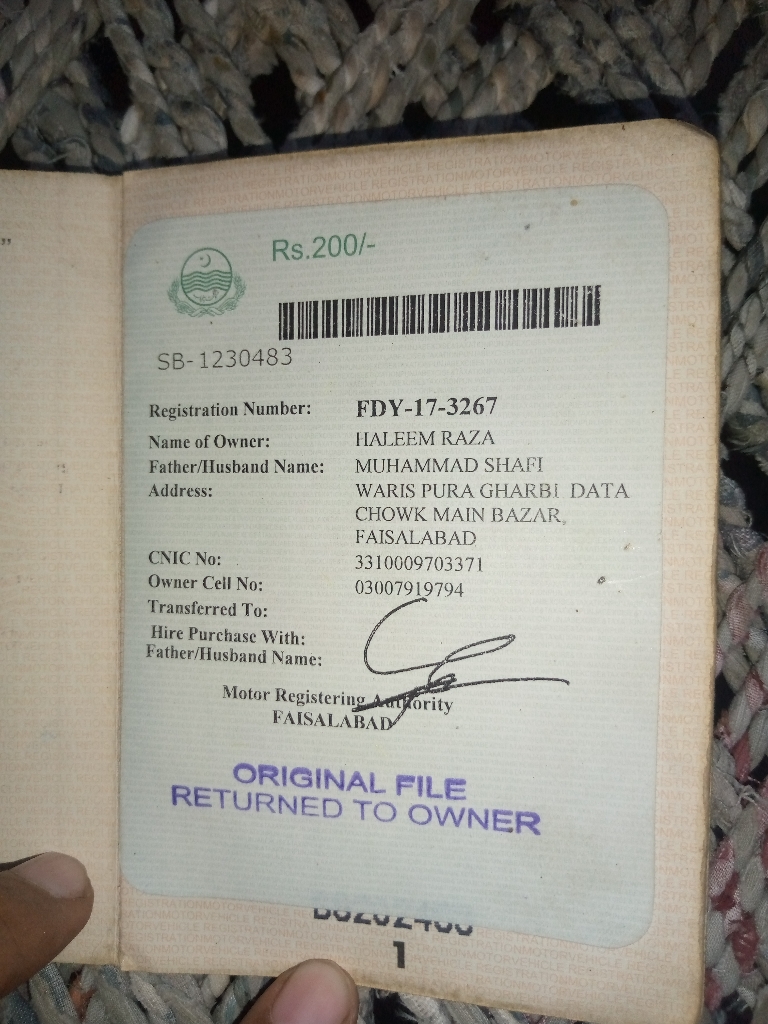 Rs.200/-
SB-1230483
Registration Number: FDY-17-3267
Name of Owner: HALEEM RAZA
Father/Husband Name: MUHAMMAD SHAFI
Address: WARIS PURA GHARBI DATA
CHOWK MAIN BAZAR,
FAISALABAD
CNIC No: 3310009703371
Owner Cell No: 03007919794
Transferred To:
Hire Purchase With:
Father/Husband Name:
Motor Registering Authority
FAISALABAD
ORIGINAL FILE
RETURNED TO OWNER
1